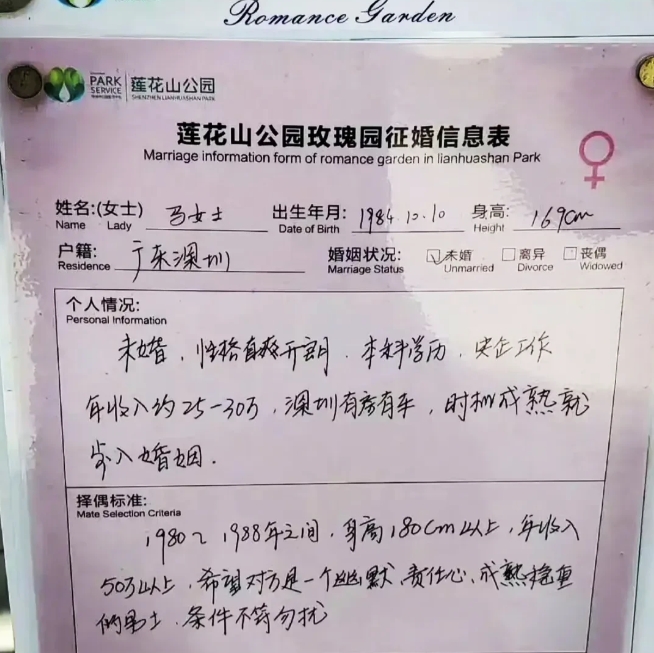 Romance Garden
PARK SERVICE 莲花山公园
SHENZHEN LIANHUASHAN PARK
莲花山公园玫瑰园征婚信息表
Marriage information form of romance garden in lianhuashan Park
姓名:(女士) 马女士 出生年月: 1984.10.10 身高: 169cm
Name Lady Date of Birth Height
户籍: 广东深圳 婚姻状况: ☑未婚 □离异 □丧偶
Residence Marriage Status Unmarried Divorce Widowed
个人情况:
Personal Information
未婚，性格直爽开朗．本科学历，央企工作
年收入约25-30万，深圳有房有车，时机成熟就
步入婚姻．
择偶标准:
Mate Selection Criteria
1980~1988年之间，身高180cm以上，年收入
50万以上，希望对方是一个幽默、责任心、成熟稳重
的男士．条件不符勿扰